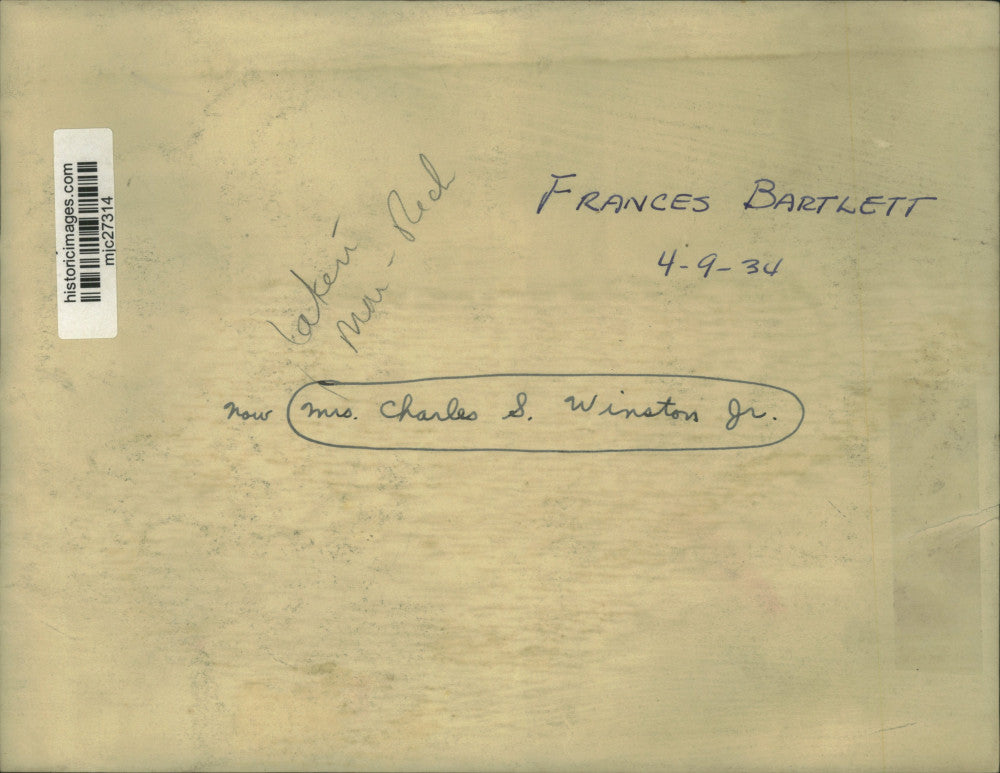 historicimages.com
mjc27314
FRANCES BARTLETT
4-9-34
now Mrs. Charles S. Winston Jr.